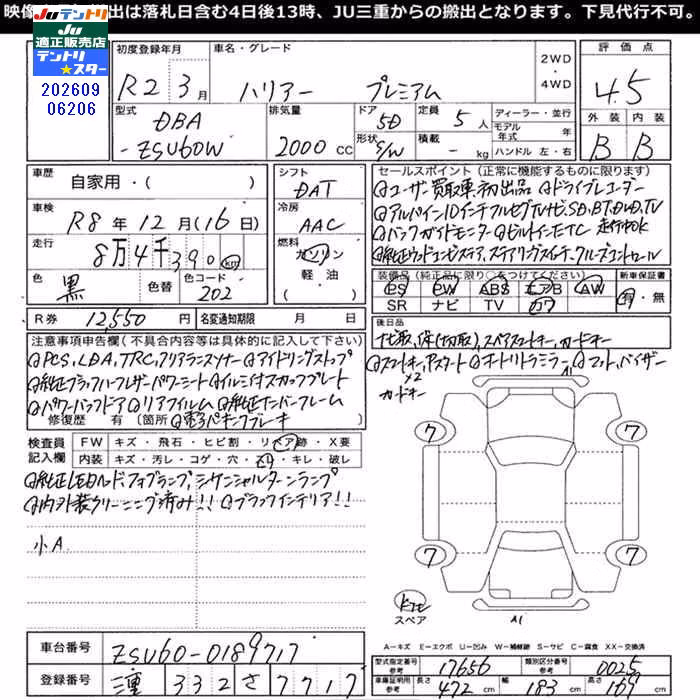 映像 出は落札日含む4日後13時、JU三重からの搬出となります。下見代行不可。
JU テントリ
JU 適正販売店
テントリ
★スター
202609
06206
初度登録年月 車名・グレード 2WD ・ 4WD 評価点
R2 3月 ハリアー プレミアム 4.5
型式 排気量 ドア 定員 ディーラー・並行 外装 内装
DBA 5D 5人 モデル年式 年
-ZSU60W 2000cc 形状 S/W 積載 - kg ハンドル 左・右 B B
車歴 自家用・( ) シフト DAT
セールスポイント(正常に機能するものに限ります)
◎ユーザー買取車初出品 ◎ドライブレコーダー
車検 R8年12月(16日) 冷房 AAC
◎アルパイン10インチフルセグTVナビ,SD,BT,DVD,TV
走行中OK
◎バックガイドモニター ◎ビルトインETC
走行 8万4千390km 燃料 ガソリン 軽油
◎純正ウッドコンビステア、ステアリングスイッチ、クルーズコントロール
色 黒 色替 色コード 202
装備品(純正品に限り○をつけてください) 新車保証書
PS PW ABS エアB AW 有・無
SR ナビ TV カワ
R券 12,550円 名変通知期限 月 日
後日品
ナビ取、保(切取)、スペアスマートキー、カードキー
注意事項申告欄(不具合内容等は具体的に記入して下さい)
◎PCS,LDA,TRC,クリアランスソナー ◎アイドリングストップ
◎スマートキー,Pスタート ◎オートリトラミラー ◎マット,バイザー
×2
カードキー
◎純正ブラックハーフレザーパワーシート ◎イルミ付スカッフプレート
◎パワーバックドア ◎リアフィルム ◎純正ナンバーフレーム
修復歴 有 (箇所 ◎電子パーキングブレーキ
検査員記入欄 FW キズ・飛石・ヒビ割・リペア跡・X要
内装 キズ・汚レ・コゲ・穴・スレ・キレ・破レ
◎純正LEDヘッド,フォグランプ,シーケンシャルターンランプ
◎内外装クリーニング済み!! ◎ブラックインテリア!!
小A
A1
7 7
7 7
スペア A1
A-キズ E-エクボ U-凹み W-補修跡 S-サビ C-腐食 XX-交換済
車台番号 ZSU60-0189717
型式指定番号 参考 17656 類別区分番号 参考 0025
登録番号 三重 332 さ 7717
車庫証明用 参考 長さ 472cm 幅 183cm 高さ 169cm